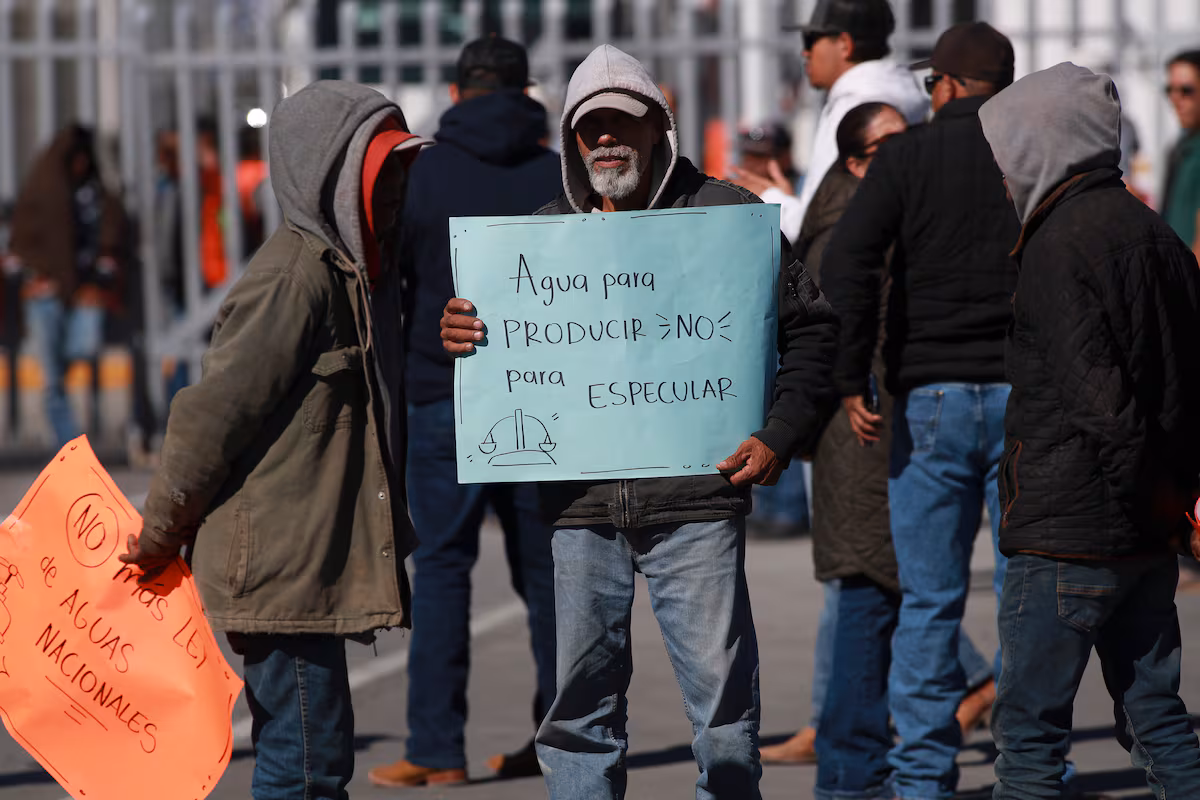 Agua para
PRODUCIR NO
para ESPECULAR
NO
más LEY
de AGUAS
NACIONALES